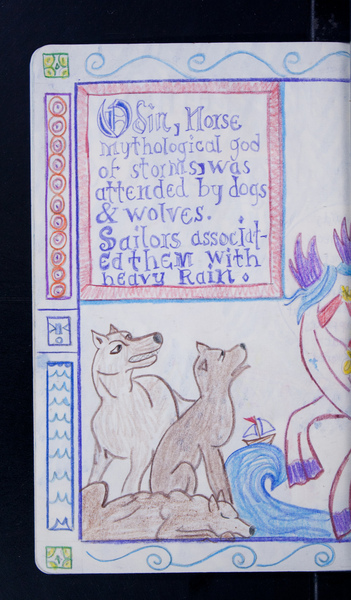 Odin, Norse
mythological god
of storms, was
attended by dogs
& wolves.
Sailors associat-
ed them with
heavy Rain.